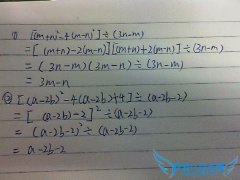 1) [(m+n)²-4(m-n)²]÷(3n-m)
=[(m+n)-2(m-n)][(m+n)+2(m-n)]÷(3n-m)
=(3n-m)(3m-n)÷(3n-m)
=3m-n
② [(a-2b)²-4(a-2b)+4]÷(a-2b-2)
=[(a-2b)-2]²÷(a-2b-2)
=(a-2b-2)²÷(a-2b-2)
=a-2b-2